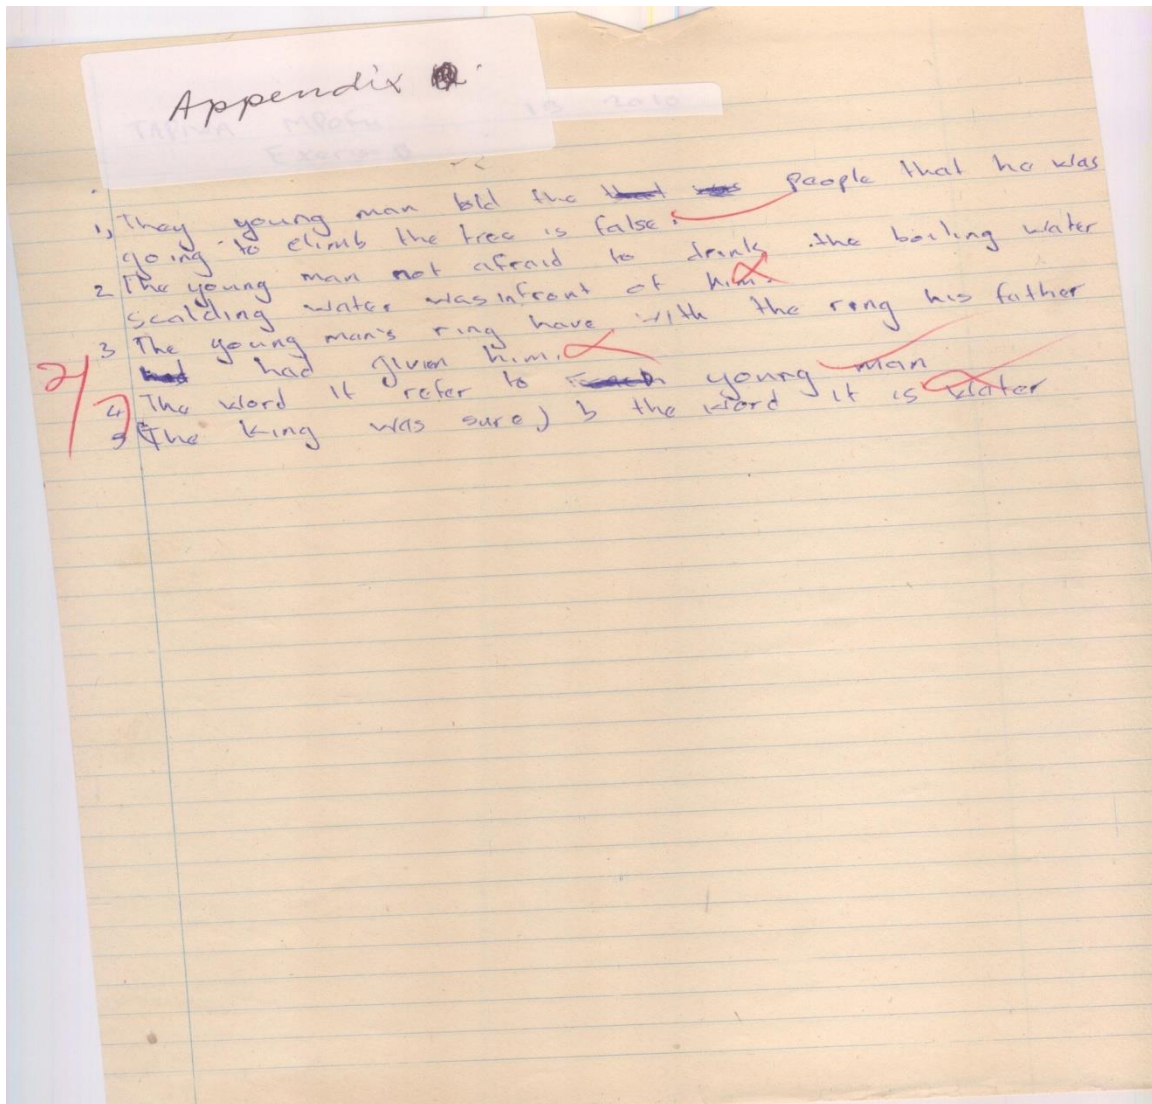 Appendix
1, They young man told the people that he was
going to climb the tree is false.
2 The young man not afraid to drink the boiling water
scalding water was infront of him.
3 The young man's ring have with the ring his father
had given him.
4 The word it refer to young man
5 The king was sure) b the word it is water
2/7